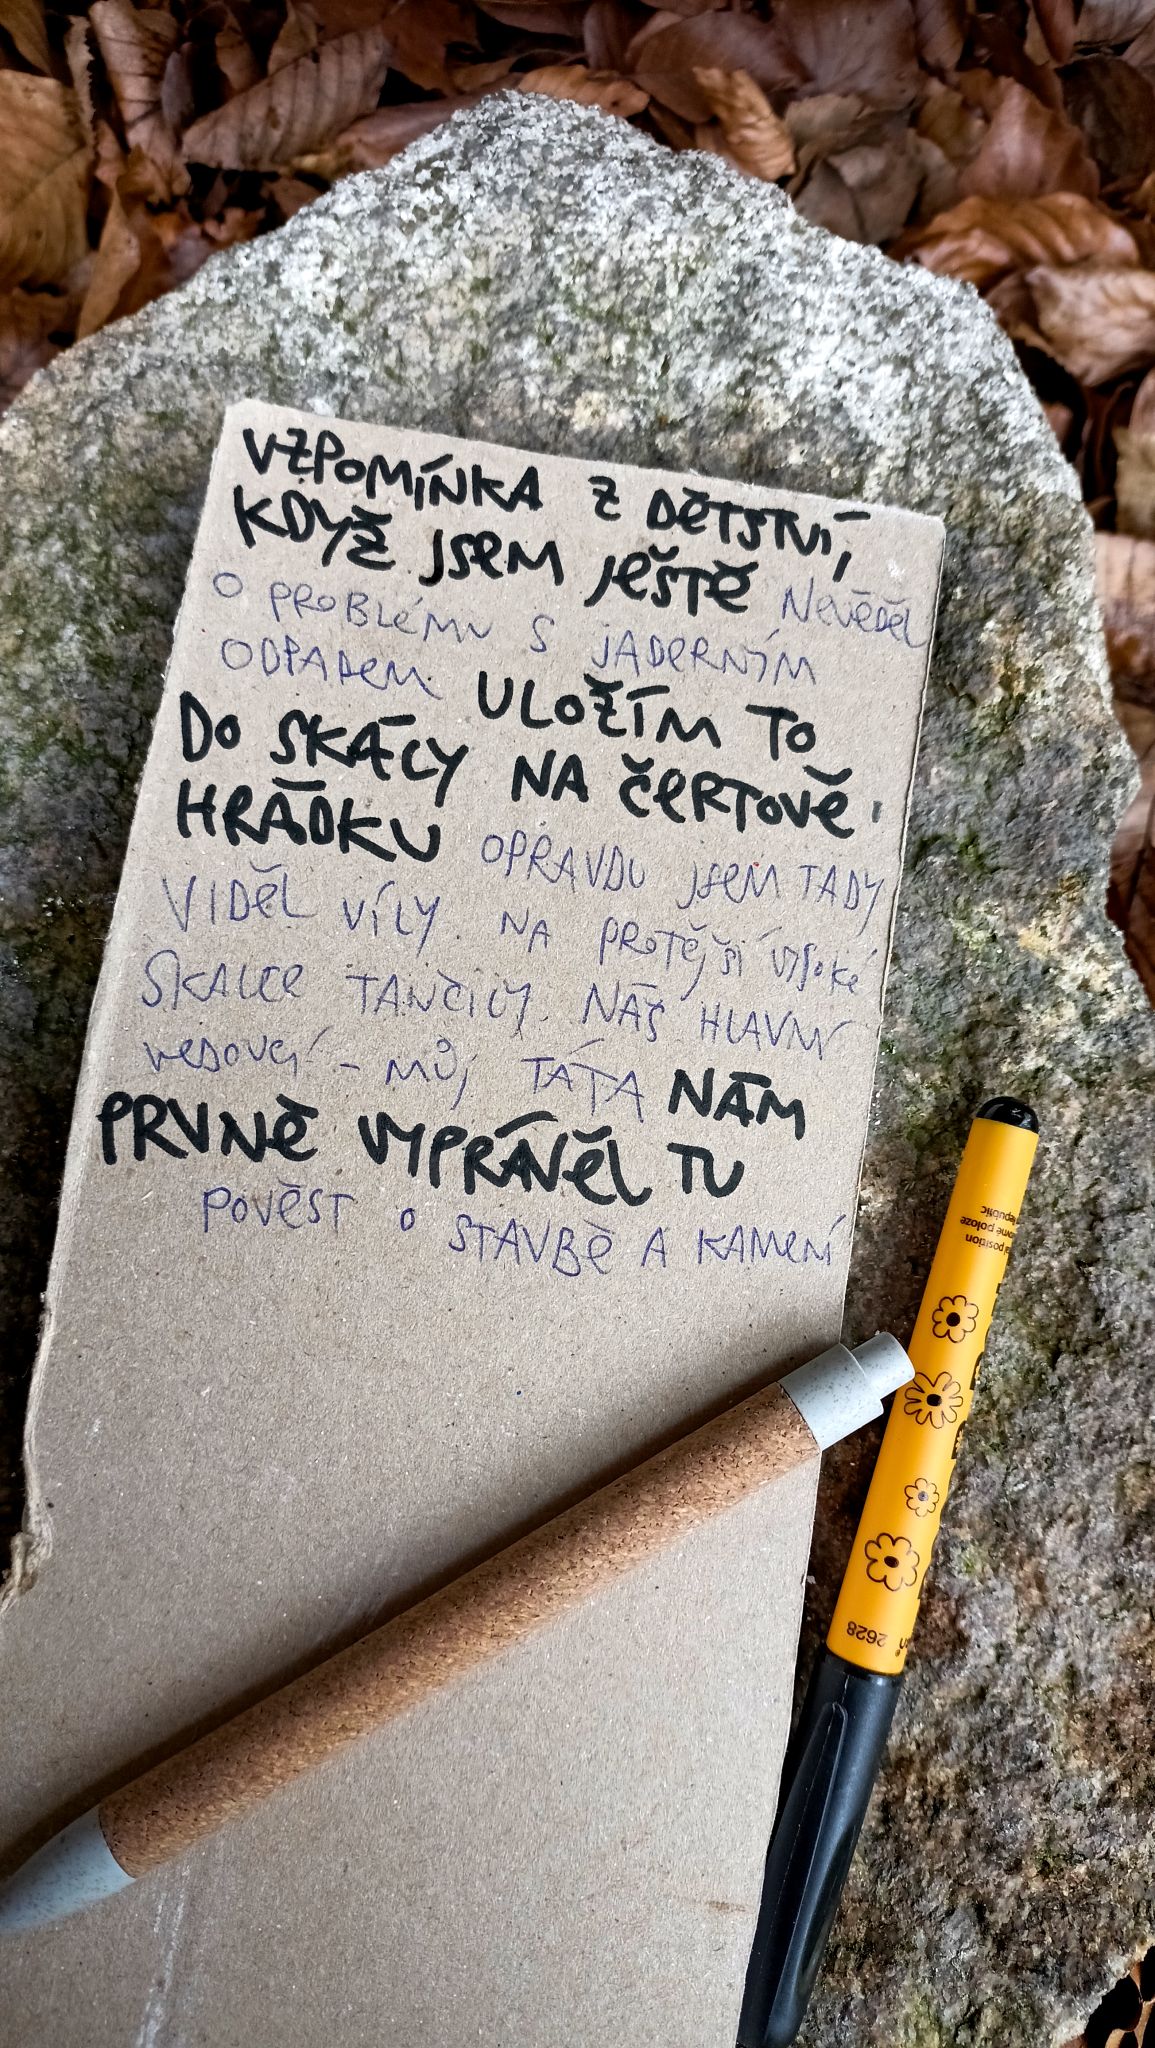 VZPOMÍNKA Z DĚTSTVÍ,
KDYŽ JSEM JEŠTĚ NEVĚDĚL
O PROBLÉMU S JADERNÝM
ODPADEM ULOŽÍM TO
DO SKÁLY NA ČERTOVĚ
HRÁDKU OPRAVDU JSEM TADY
VIDĚL VÍLY NA PROTĚJŠÍ VYSOKÉ
SKALCE TANČILY. NÁŠ HLAVNÍ
VEDOUCÍ - MŮJ TÁTA NÁM
PRVNĚ VYPRÁVĚL TU
POVĚST O STAVBĚ A KAMENÍ
position
ovné poloze
Republic
2628